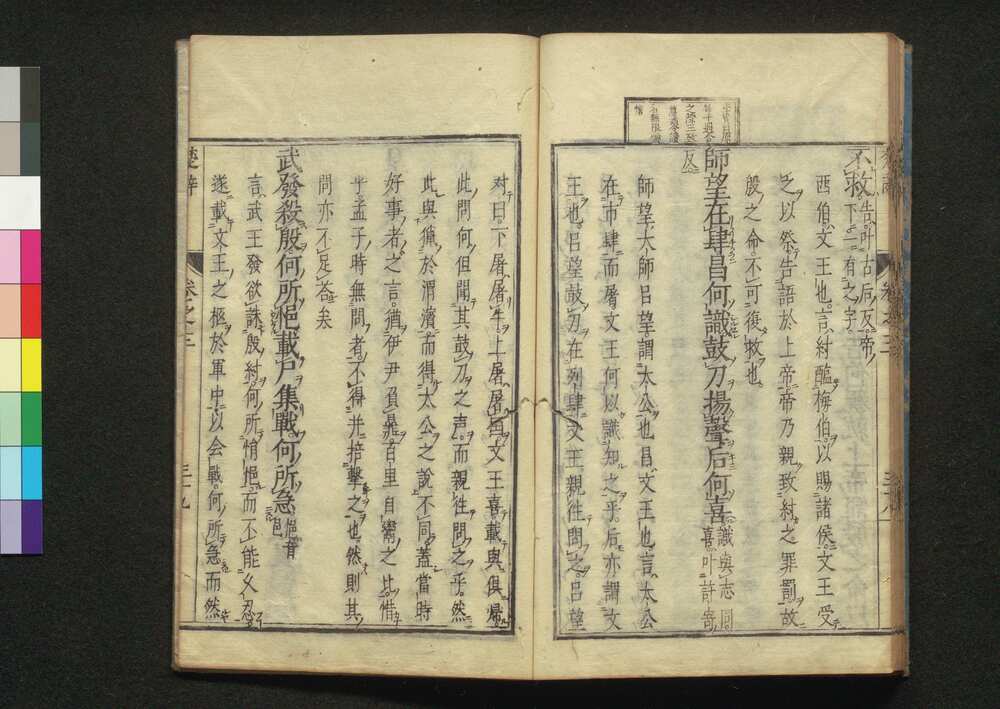 不救 告叶古后反帝
下一有之字
西伯文王也言紂醢梅伯以賜諸侯文王受
之以祭告語於上帝帝乃親致紂之罪罰故
殷之命不可復救也
師望在肆昌何識鼓刀揚聲后何喜 識與志同
喜叶許寄
反
師望太師呂望謂太公也昌文王也言太公
在市肆而屠文王何以識知之乎后亦謂文
王也呂望鼓刀在列肆文王親往問之呂望
楚辭 卷之三 三十九
對曰下屠屠牛上屠屠國文王喜載與俱歸
此問何但聞其鼓刀之聲而親往問之乎然
此與獵於渭濱而得太公之說不同蓋當時
好事者之言猶伊尹負鼎百里自鬻之比惜
乎孟子時無問者不得并掊擊之也然則其
問亦不足荅矣
武發殺殷何所悒載尸集戰何所急 悒音
邑
言武王發欲誅殷紂何所悁悒而不能久忍
遂載文王之柩於軍中以会戰何所急而然